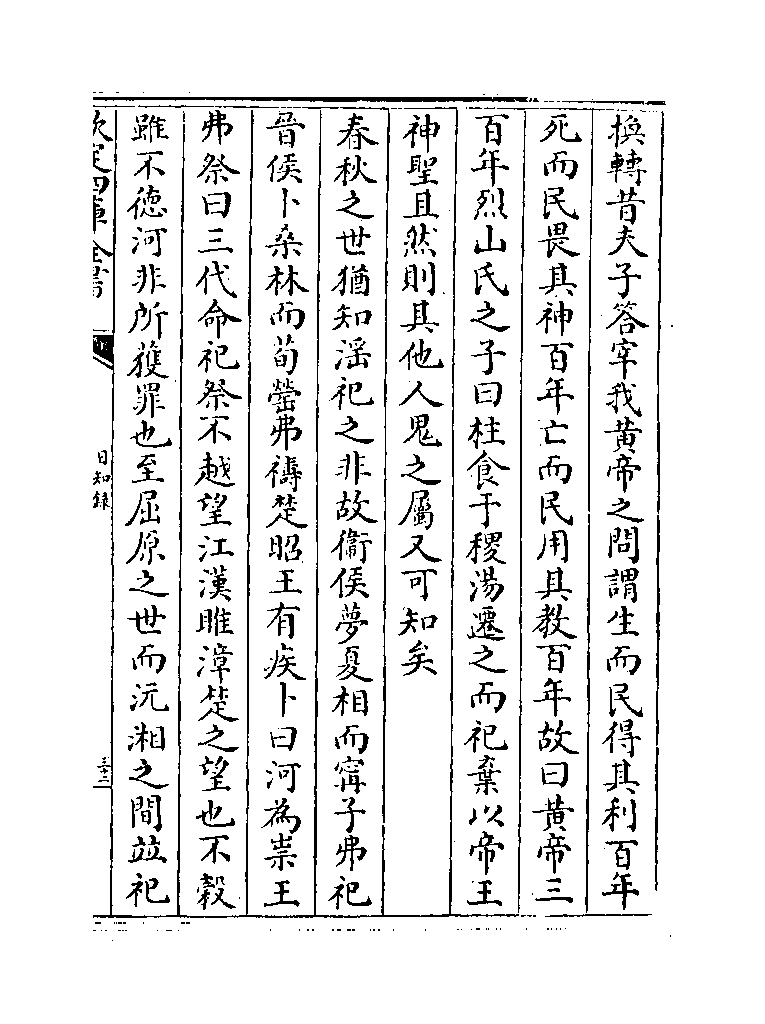 換轉昔夫子答宰我黄帝之問謂生而民得其利百年
死而民畏其神百年亡而民用其教百年故曰黄帝三
百年烈山氏之子曰柱食于稷湯遷之而祀棄以帝王
神聖且然則其他人鬼之屬又可知矣
春秋之世猶知淫祀之非故衞侯夢夏相而甯子弗祀
晉侯卜桑林而荀罃弗禱楚昭王有疾卜曰河為祟王
弗祭曰三代命祀祭不越望江漢睢漳楚之望也不榖
雖不徳河非所獲罪也至屈原之世而沅湘之間並祀
欽定四庫全書
日知録
三十二